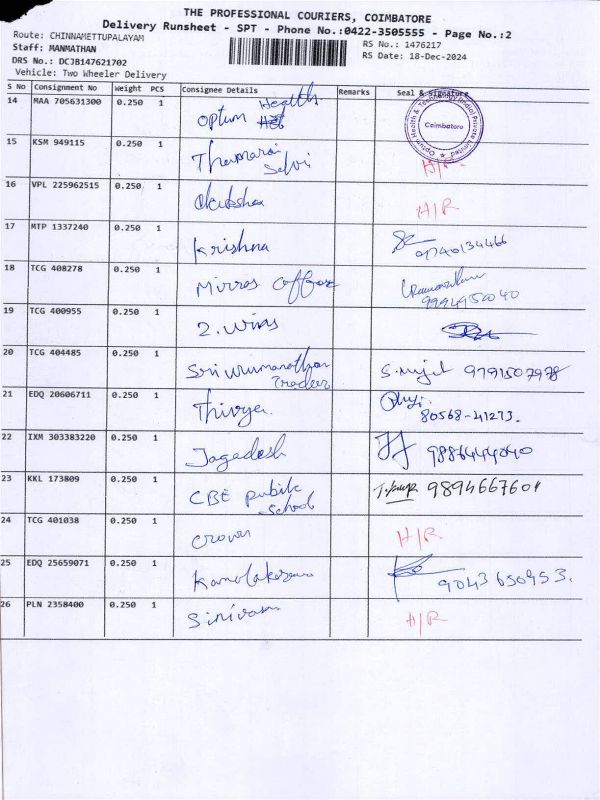 THE PROFESSIONAL COURIERS, COIMBATORE
Delivery Runsheet - SPT - Phone No.:0422-3505555 - Page No.:2
Route: CHINNAMETTUPALAYAM
RS No.: 1476217
Staff: MANMATHAN
RS Date: 18-Dec-2024
DRS No.: DCJB147621702
Vehicle: Two Wheeler Delivery
S No Consignment No Weight PCS Consignee Details Remarks Seal & Signature
14 MAA 705631300 0.250 1 Optum Health
Coimbatore
15 KSM 949115 0.250 1 Thamarai Selvi H/R
16 VPL 225962515 0.250 1 H/R
17 MTP 1337240 0.250 1 Krishna
18 TCG 408278 0.250 1 9994952040
19 TCG 400955 0.250 1 2. Wins
20 TCG 404485 0.250 1 Traders 9791507978
21 EDQ 20606711 0.250 1 Thivya 80568-41273.
22 IXM 303383220 0.250 1 Jagadesh 9886444040
23 KKL 173809 0.250 1 CBE Public School 9894667601
24 TCG 401038 0.250 1 Crown H/R
25 EDQ 25659071 0.250 1 9043650953.
26 PLN 2358400 0.250 1 H/R